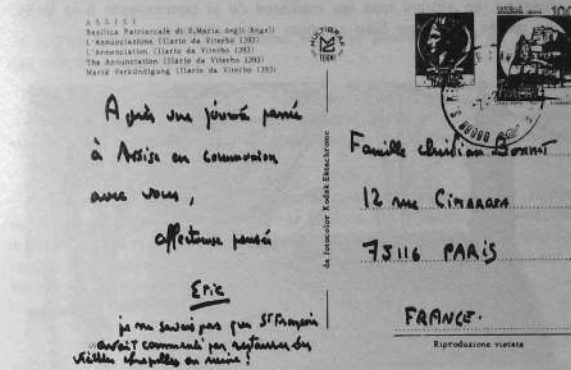 ASSISI
Basilica Patriarcale di S.Maria degli Angeli
L'Annunciazione (Ilario da Viterbo 1393)
L'Annonciation (Ilario da Viterbo 1393)
The Annunciation (Ilario da Viterbo 1393)
Mariä Verkündigung (Ilario da Viterbo 1393)
MULTIGRAF
TERNI
100
Après une journée passée
à Assise en communion
avec vous,
affectueuse pensée
Eric
je ne savais pas que St François
avait commencé par restaurer des
vieilles chapelles en ruine !
da fotocolor Kodak Ektachrome
Famille christian Bonnet
12 rue Cimarosa
75116 PARIS
FRANCE.
Riproduzione vietata